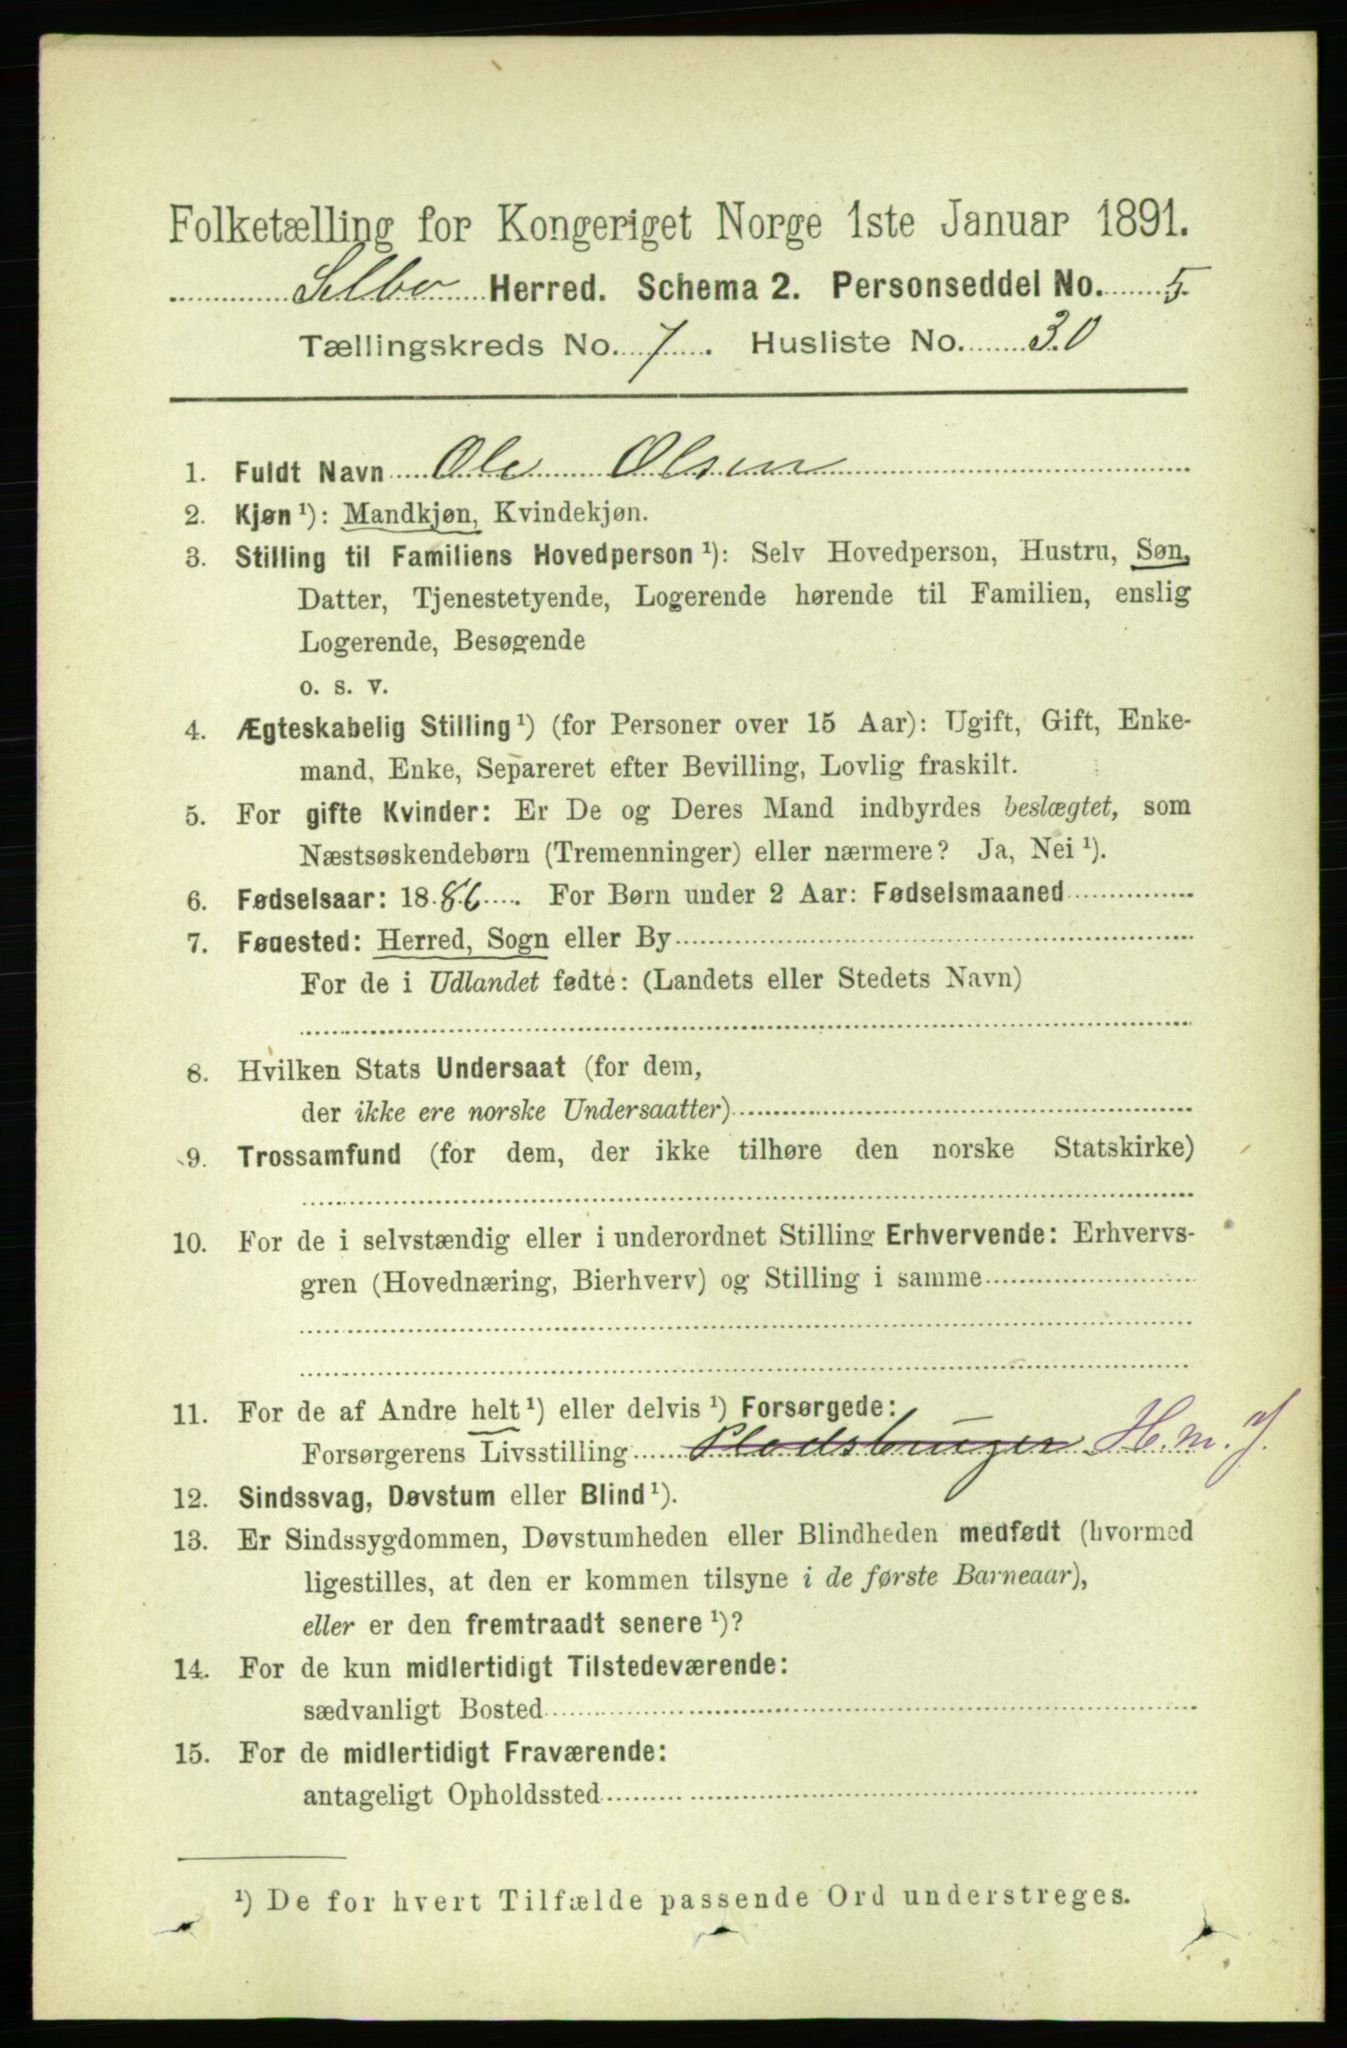 Folketælling for Kongeriget Norge 1ste Januar 1891.
Selbo Herred. Schema 2. Personseddel No. 5.
Tællingskreds No. 7. Husliste No. 30
1. Fuldt Navn Ole Olsen
2. Kjøn ¹): Mandkjøn, Kvindekjøn.
3. Stilling til Familiens Hovedperson ¹): Selv Hovedperson, Hustru, Søn,
Datter, Tjenestetyende, Logerende hørende til Familien, enslig
Logerende, Besøgende
o. s. v.
4. Ægteskabelig Stilling ¹) (for Personer over 15 Aar): Ugift, Gift, Enke-
mand, Enke, Separeret efter Bevilling, Lovlig fraskilt.
5. For gifte Kvinder: Er De og Deres Mand indbyrdes beslægtet, som
Næstsøskendebørn (Tremenninger) eller nærmere? Ja, Nei ¹).
6. Fødselsaar: 1886. For Børn under 2 Aar: Fødselsmaaned
7. Fødested: Herred, Sogn eller By
For de i Udlandet fødte: (Landets eller Stedets Navn)
8. Hvilken Stats Undersaat (for dem,
der ikke ere norske Undersaatter)
9. Trossamfund (for dem, der ikke tilhøre den norske Statskirke)
10. For de i selvstændig eller i underordnet Stilling Erhvervende: Erhvervs-
gren (Hovednæring, Bierhverv) og Stilling i samme
11. For de af Andre helt ¹) eller delvis ¹) Forsørgede:
Forsørgerens Livsstilling Pladsbruger H. m. J.
12. Sindssvag, Døvstum eller Blind ¹).
13. Er Sindssygdommen, Døvstumheden eller Blindheden medfødt (hvormed
ligestilles, at den er kommen tilsyne i de første Barneaar),
eller er den fremtraadt senere ¹)?
14. For de kun midlertidigt Tilstedeværende:
sædvanligt Bosted
15. For de midlertidigt Fraværende:
antageligt Opholdssted
¹) De for hvert Tilfælde passende Ord understreges.